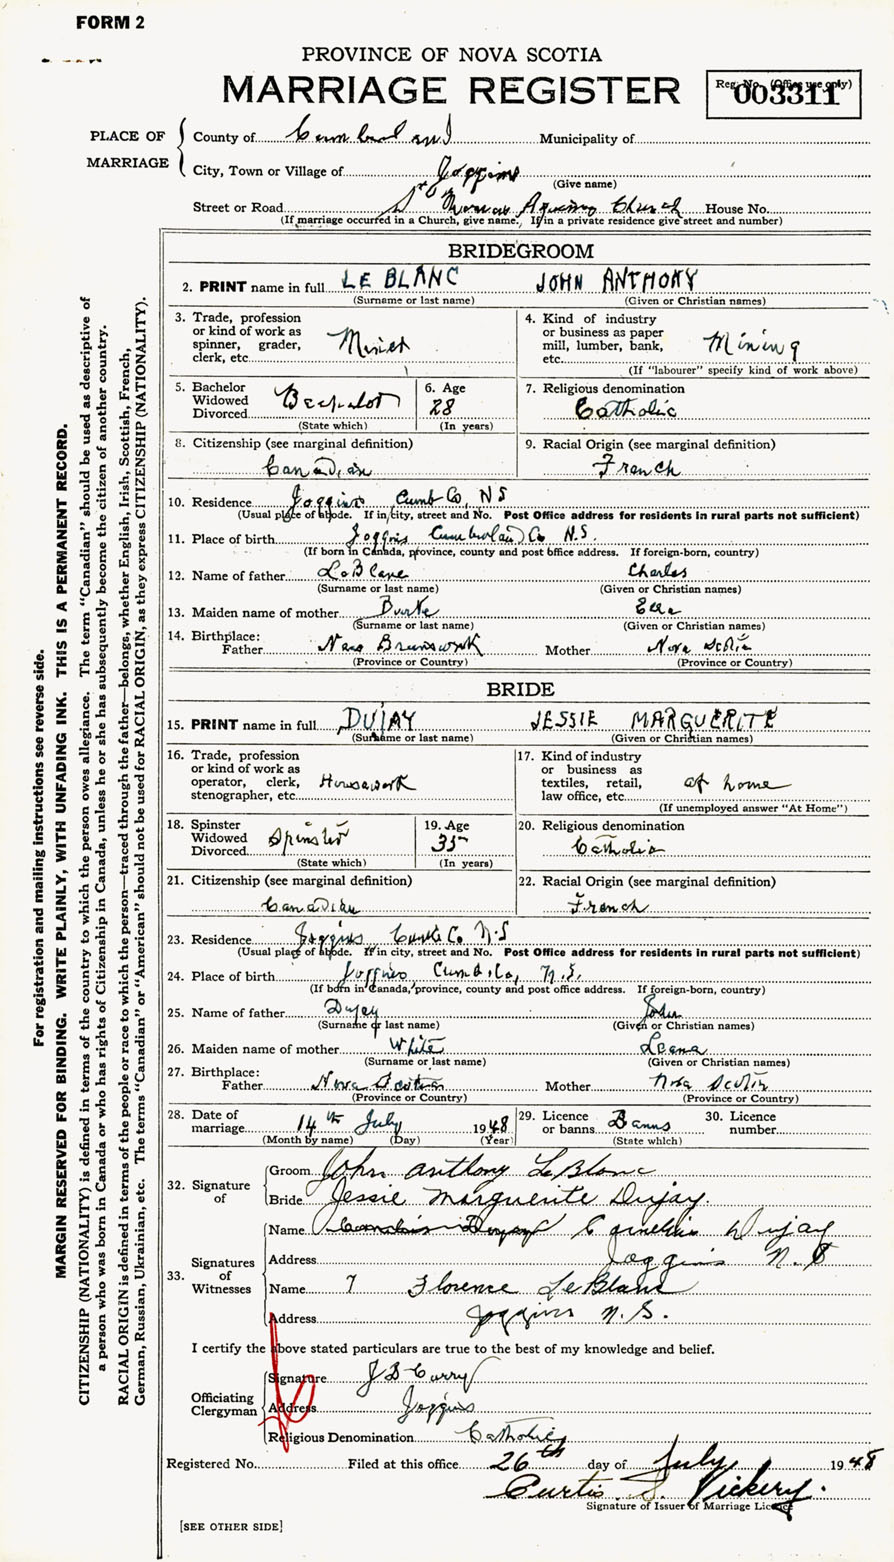 FORM 2
PROVINCE OF NOVA SCOTIA
MARRIAGE REGISTER
Reg. No. (Office use only)
003311
PLACE OF MARRIAGE
County of Cumberland Municipality of
City, Town or Village of Joggins
(Give name)
Street or Road St Thomas Aquinas Church House No.
(If marriage occurred in a Church, give name. If in a private residence give street and number)
BRIDEGROOM
2. PRINT name in full LE BLANC JOHN ANTHONY
(Surname or last name) (Given or Christian names)
3. Trade, profession
or kind of work as
spinner, grader,
clerk, etc. Miner
4. Kind of industry
or business as paper
mill, lumber, bank,
etc. Mining
(If "labourer" specify kind of work above)
5. Bachelor
Widowed
Divorced Bachelor
(State which)
6. Age
28
(In years)
7. Religious denomination
Catholic
8. Citizenship (see marginal definition)
Canadian
9. Racial Origin (see marginal definition)
French
10. Residence Joggins Cumb Co, NS
(Usual place of abode. If in city, street and No. Post Office address for residents in rural parts not sufficient)
11. Place of birth Joggins Cumberland Co N.S.
(If born in Canada, province, county and post office address. If foreign-born, country)
12. Name of father LeBlanc Charles
(Surname or last name) (Given or Christian names)
13. Maiden name of mother Burke Ella
(Surname or last name) (Given or Christian names)
14. Birthplace:
Father New Brunswick Mother Nova Scotia
(Province or Country) (Province or Country)
BRIDE
15. PRINT name in full DUJAY JESSIE MARGUERITE
(Surname or last name) (Given or Christian names)
16. Trade, profession
or kind of work as
operator, clerk,
stenographer, etc. Housework
17. Kind of industry
or business as
textiles, retail,
law office, etc. at home
(If unemployed answer "At Home")
18. Spinster
Widowed
Divorced Spinster
(State which)
19. Age
35
(In years)
20. Religious denomination
Catholic
21. Citizenship (see marginal definition)
Canadian
22. Racial Origin (see marginal definition)
French
23. Residence Joggins Cumb Co. N.S
(Usual place of abode. If in city, street and No. Post Office address for residents in rural parts not sufficient)
24. Place of birth Joggins Cumb. Co, N.S.
(If born in Canada, province, county and post office address. If foreign-born, country)
25. Name of father Dujay John
(Surname or last name) (Given or Christian names)
26. Maiden name of mother White Leana
(Surname or last name) (Given or Christian names)
27. Birthplace:
Father Nova Scotia Mother Nova Scotia
(Province or Country) (Province or Country)
28. Date of
marriage 14th July 1948
(Month by name) (Day) (Year)
29. Licence
or banns Banns
(State which)
30. Licence
number
32. Signature
of
Groom John Anthony LeBlanc
Bride Jessie Marguerite Dujay.
33. Signatures
of
Witnesses
Name Cornelius Dujay
Address Joggins N.S
Name Florence LeBlanc
Address Joggins N.S.
I certify the above stated particulars are true to the best of my knowledge and belief.
Officiating
Clergyman
Signature J D Curry
Address Joggins
Religious Denomination Catholic
Registered No. Filed at this office 26th day of July 1948
Curtis Vickery.
Signature of Issuer of Marriage Licence
[SEE OTHER SIDE]
For registration and mailing instructions see reverse side.
MARGIN RESERVED FOR BINDING. WRITE PLAINLY, WITH UNFADING INK. THIS IS A PERMANENT RECORD.
CITIZENSHIP (NATIONALITY) is defined in terms of the country to which the person owes allegiance. The term "Canadian" should be used as descriptive of
a person who was born in Canada or who has rights of Citizenship in Canada, unless he or she has subsequently become the citizen of another country.
RACIAL ORIGIN is defined in terms of the people or race to which the person—traced through the father—belongs, whether English, Irish, Scottish, French,
German, Russian, Ukrainian, etc. The terms "Canadian" or "American" should not be used for RACIAL ORIGIN, as they express CITIZENSHIP (NATIONALITY).